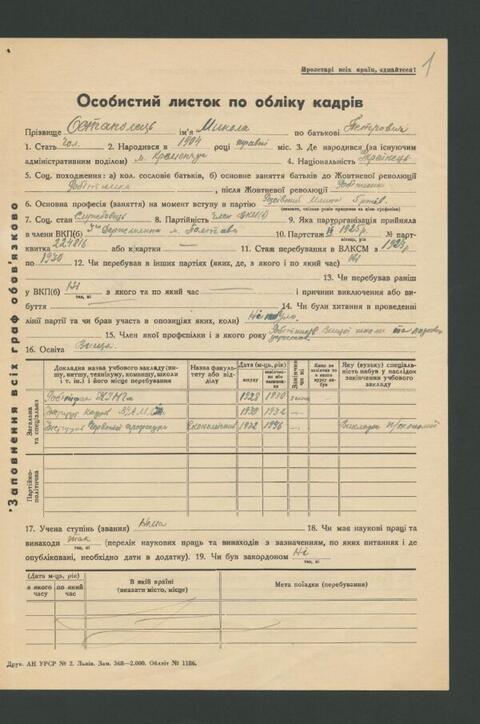 1
Пролетарі всіх країн, єднайтеся!
Особистий листок по обліку кадрів
Прізвище Остаполець ім'я Микола по батькові Петрович
1. Стать чол. 2. Народився в 1904 році травні міс. 3. Де народився (за існуючим
адміністративним поділом) м. Кременчук 4. Національність Українець
5. Соц. походження: а) кол. сословіє батьків, б) основне заняття до Жовтневої революції
Робітники, після Жовтневої революції Робітники
6. Основна професія (заняття) на момент вступу в партію
7. Соц. стан Службовець 8. Партійність Член ВКП(б) 9. Яка парторганізація прийняла
в члени ВКП(б) м. Полтава 10. Партстаж з 1925 р. № парт-
місяць, рік
квитка 224816 або к/картки — 11. Стаж перебування в ВЛКСМ з 1925 р.
по 1930 12. Чи перебував в інших партіях (яких, де, з якого і по який час) Ні
13. Чи перебував раніш
у ВКП(б) Ні з якого та по який час — і причини виключення або ви-
так, ні
буття — 14. Чи були хитання в проведенні
лінії партії та чи брав участь в опозиціях яких, коли) Не було
15. Член якої профспілки і з якого року Робітників Вищої школи та наукових
установ
16. Освіта Вища
Загальна та спеціальна
Партійно-політична
Докладна назва учбового закладу (ви-
шу, технікуму, комвишу, школи
і т. ін.) і його місце перебування
Назва факуль-
тету або від-
ділу
Дата (м-ць, рік)
вступу
Закінчив чи ні
Яку (вузьку) спеціаль-
ність набув у наслідок
закінчення учбового
закладу
1928 1930
1930 1932 —
Інститут Червоної професури Економічний 1932 1936 — Викладач п/економії
17. Учена ступінь (звання) 18. Чи має наукові праці та
винаходи так (перелік наукових праць та винаходів з зазначенням, по яких питаннях і де
так, ні
опубліковані, необхідно дати в додатку). 19. Чи був закордоном Ні
так, ні
(Дата м-ць, рік)
з якого часу
по який час
В якій країні
(вказати місто, місце)
Мета поїздки (перебування)
Друк. АН УРСР № 2. Львів. Зам. 368—2.000. Обліт № 1186.
Заповнення всіх граф обов'язково